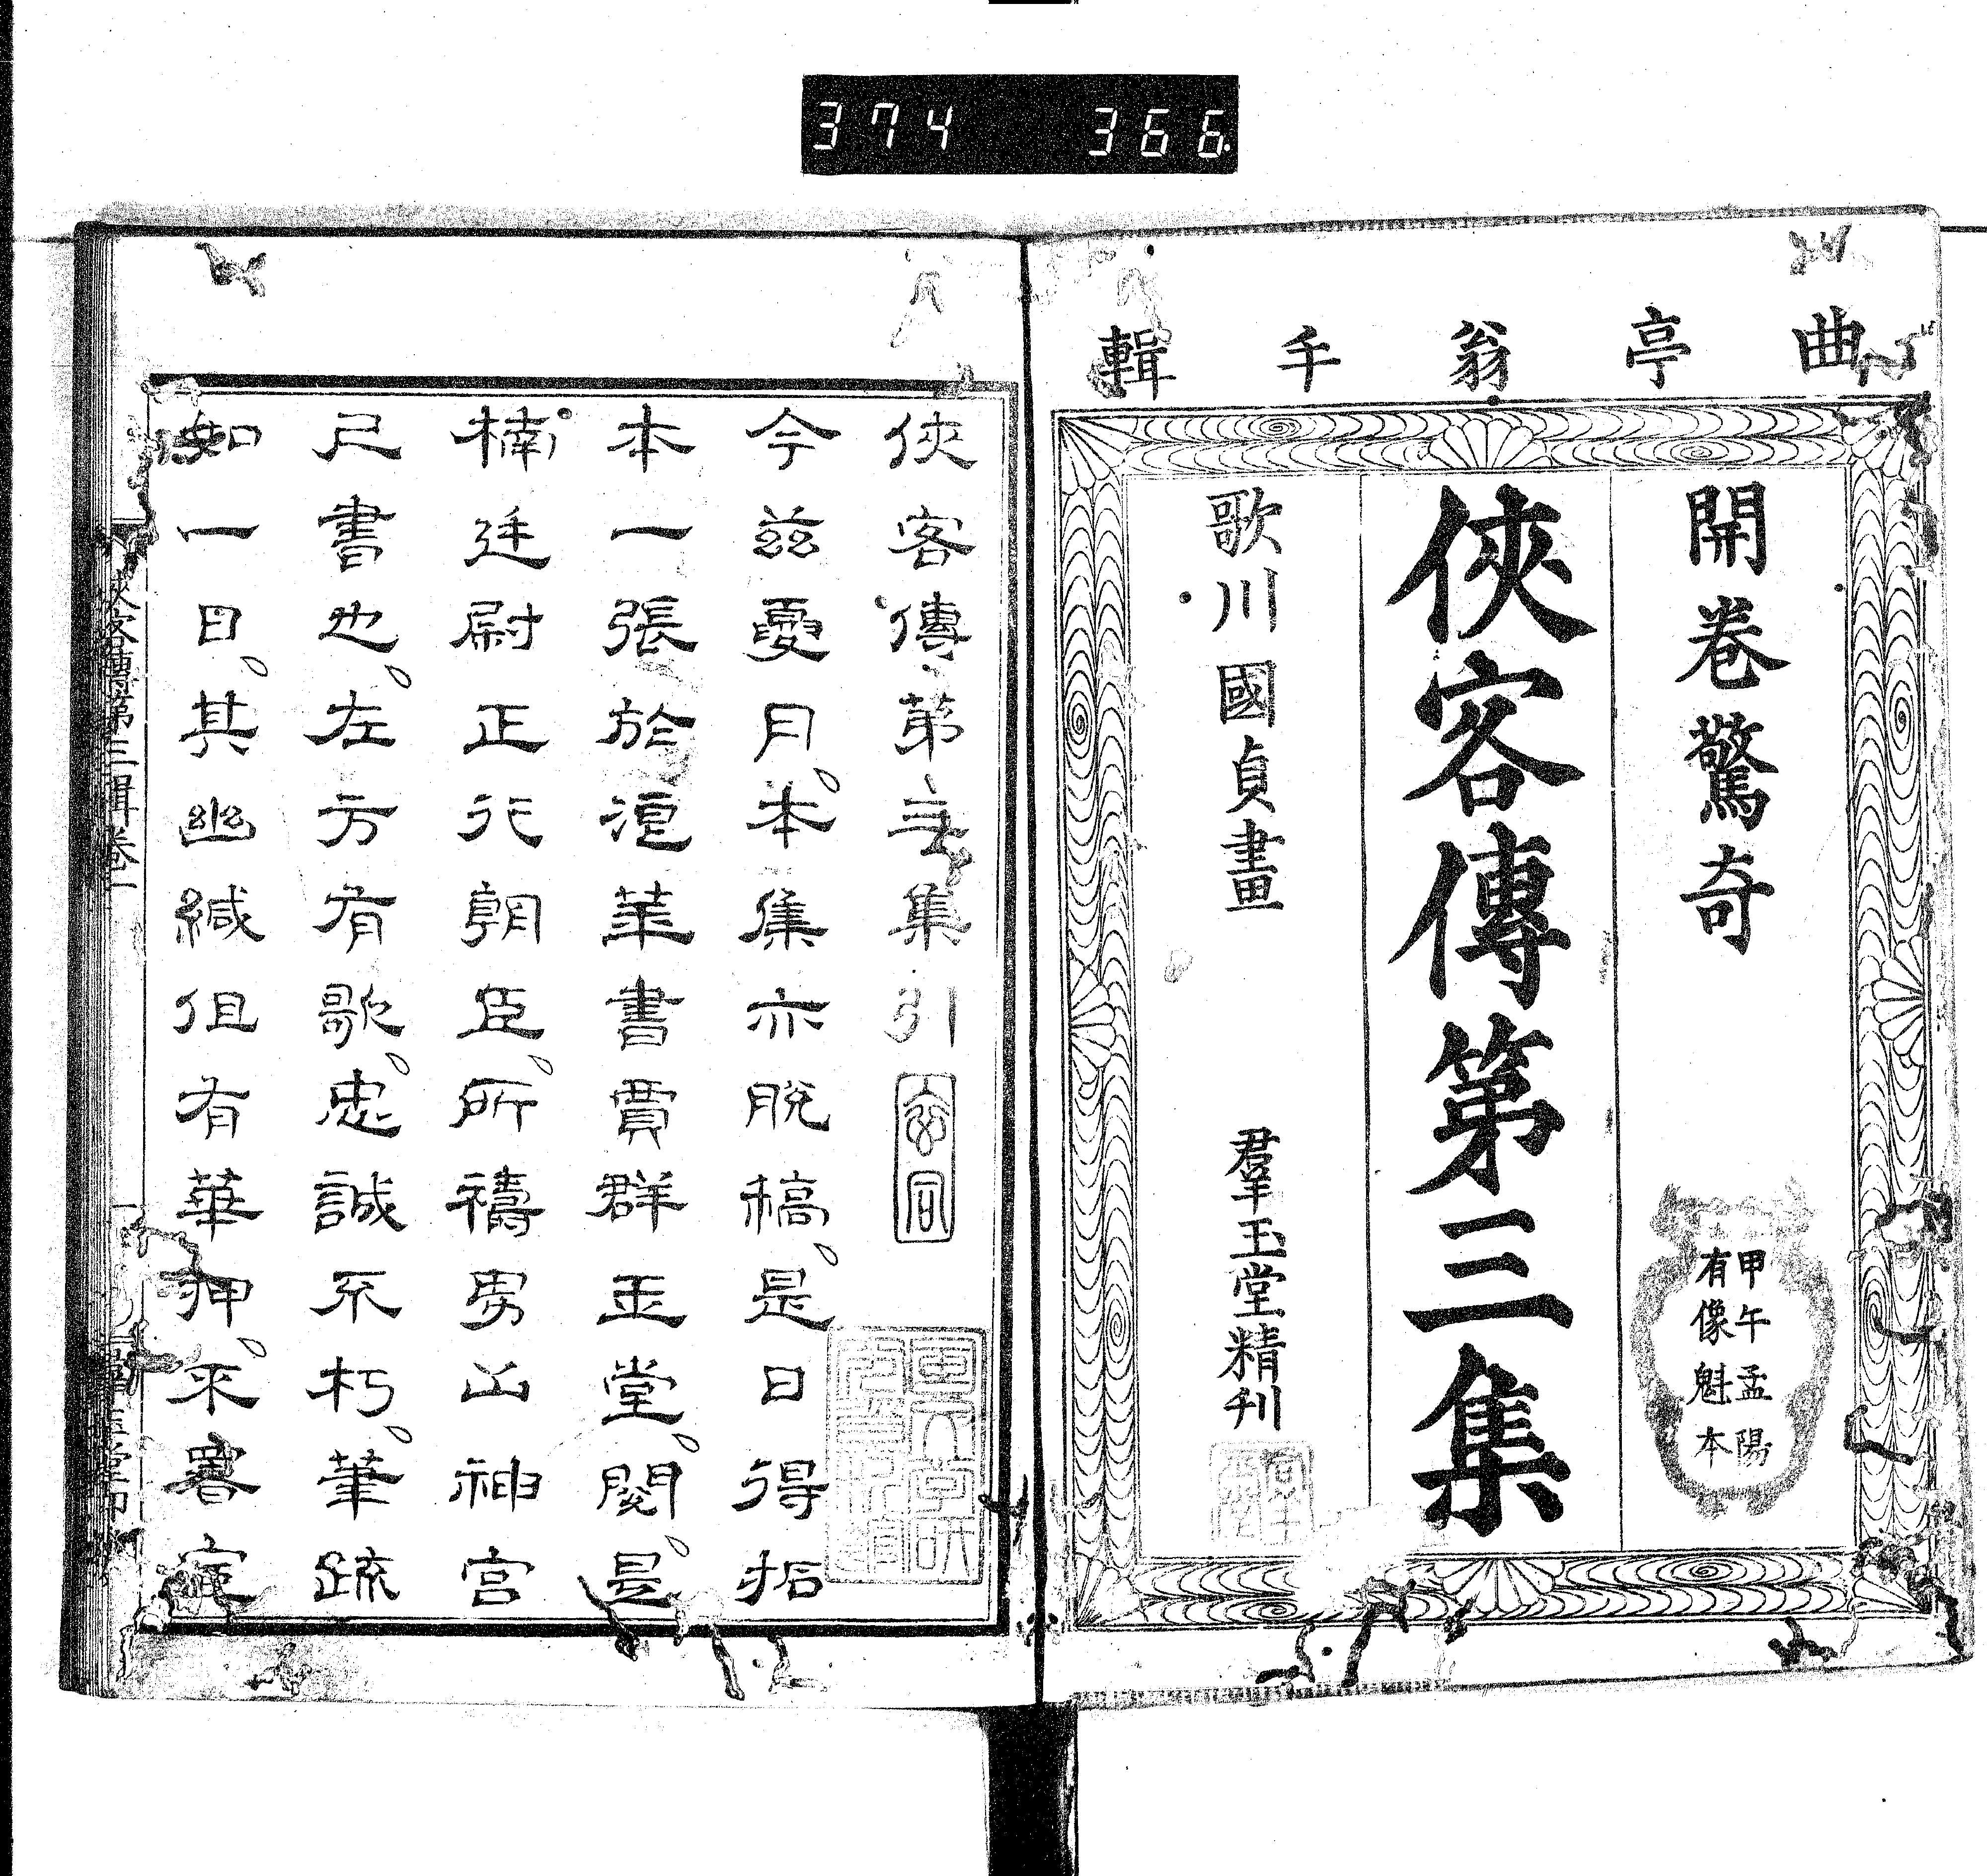 374 366
曲亭翁手輯
開卷驚奇
甲午孟陽
有像魁本
俠客傳第三集
歌川國貞畫
羣玉堂精刊
俠客傳第三集引
今茲夏月、本集亦脱稿、是日得拓
本一張於浪華書賈群玉堂、閱、是
楠廷尉正行朝臣、所禱男山神宮
己書也、左方有歌、忠誠不朽、筆跡
如一日、其幽緘但有華押、未署
俠客傳第三輯卷一